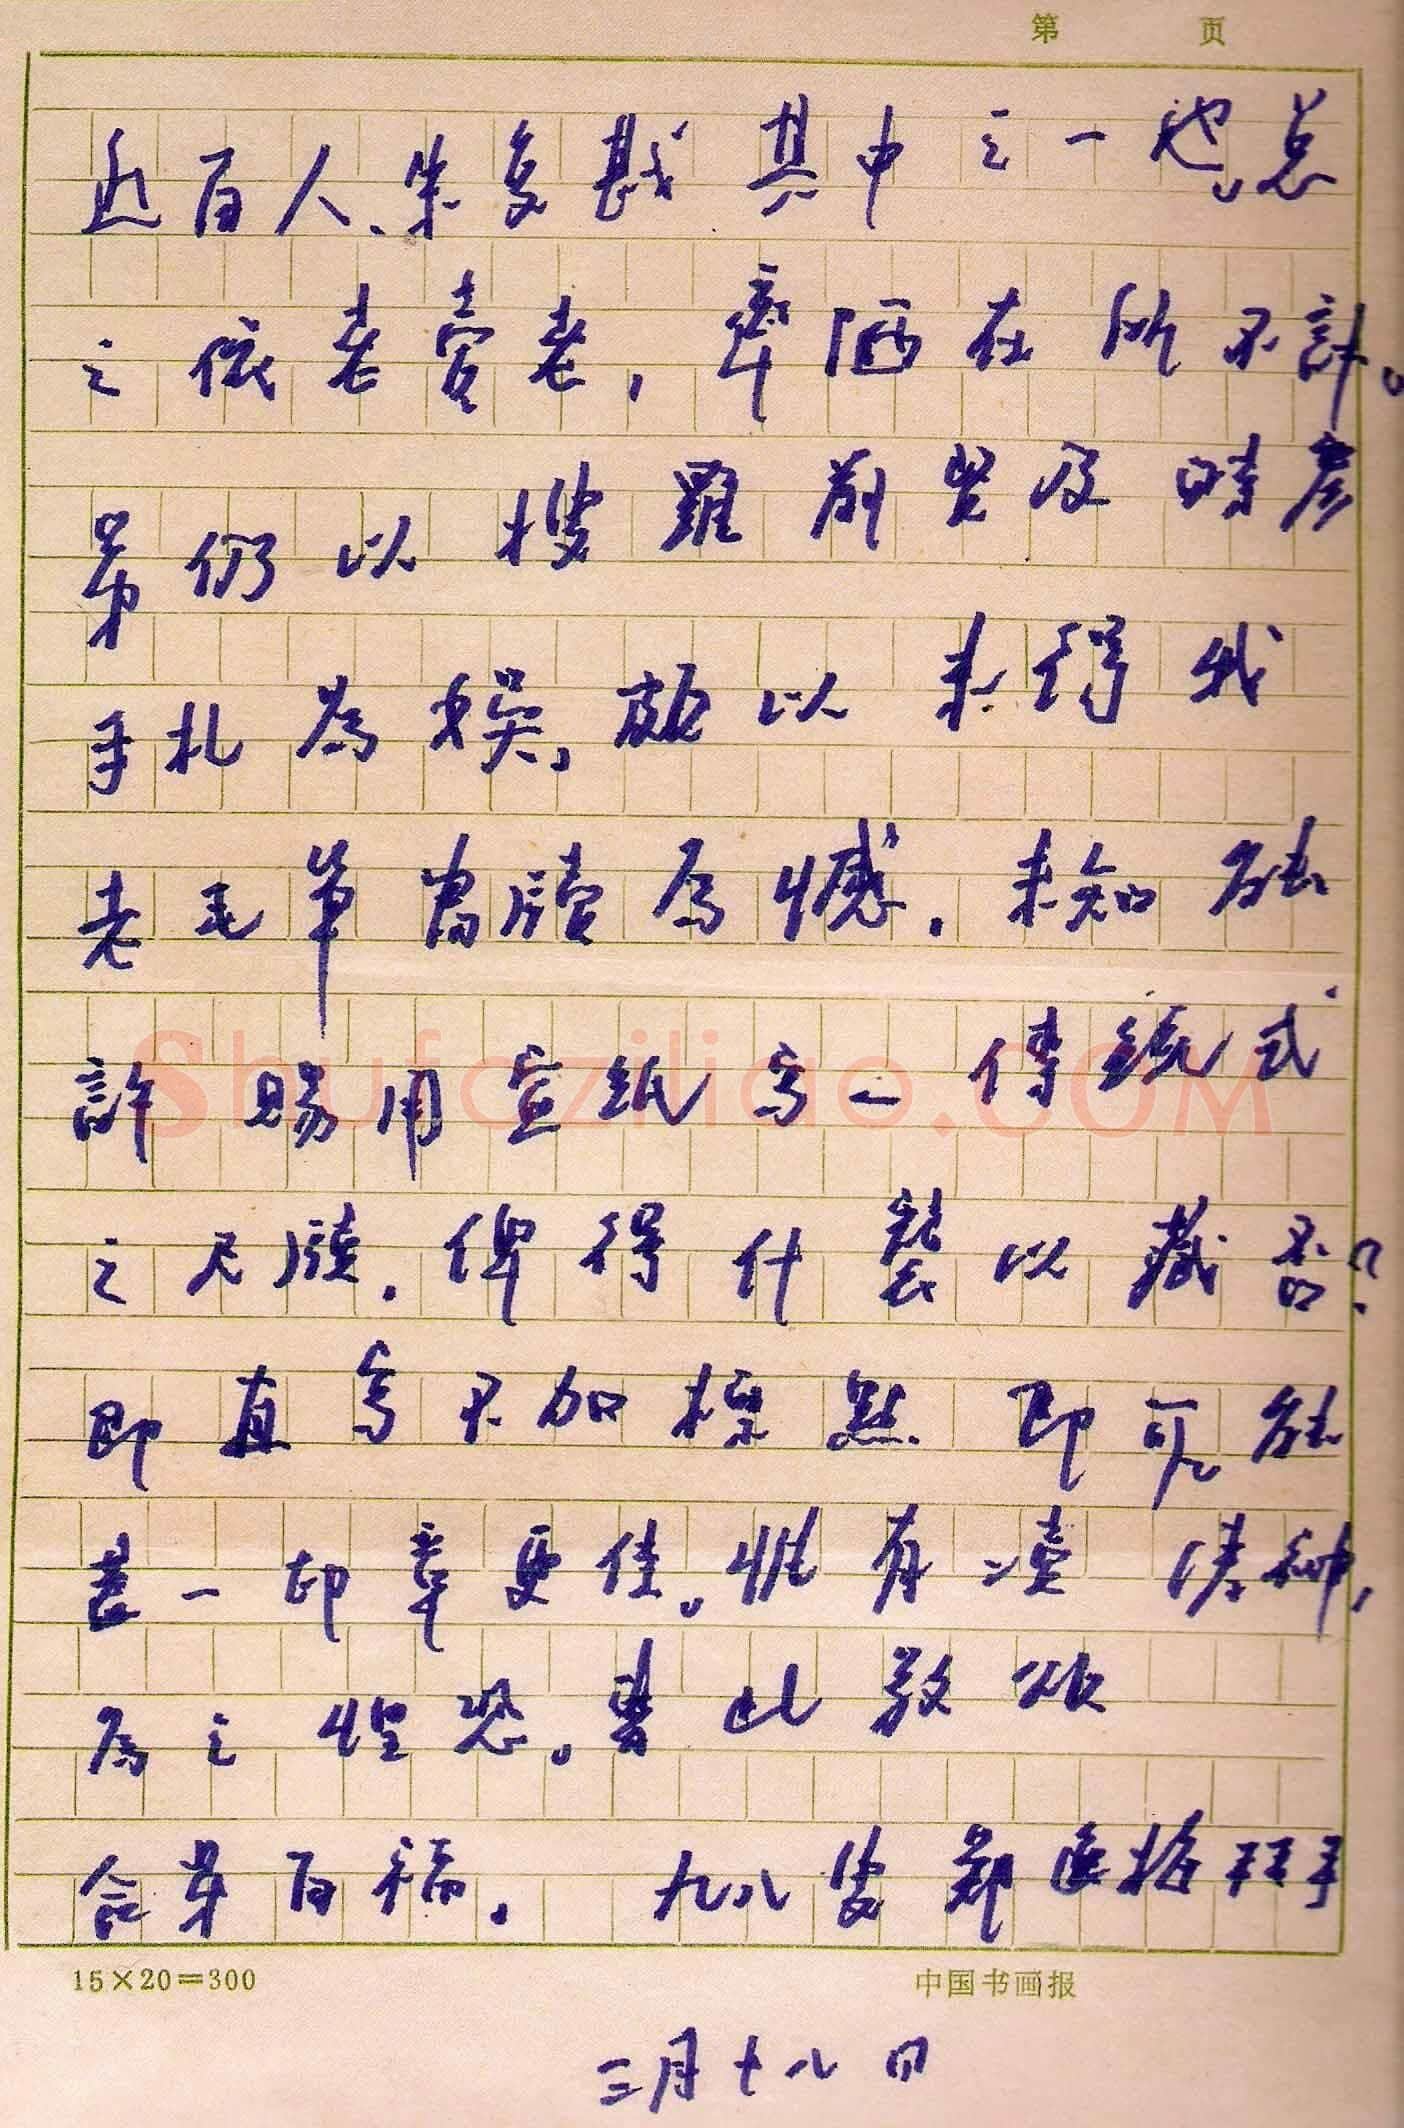 第 页
近百人、朱复戡其中之一也，总
之依老卖老，率陋在所不計。
弟仍以搜羅前贤及時彦
手札為娱，頗以未得我
老毛筆尚牘為憾，未知能
許賜用宣紙写一傳統式
之尺牘，俾得什襲以藏否？
即直写不加標點即可，能
盖一印章更佳。惟有瀆清神，
為之惶恐。專此敬颂
合第百福。九八叟鄭逸梅拜手
15×20=300
中国书画报
三月十八日
Shufaziliao.COM